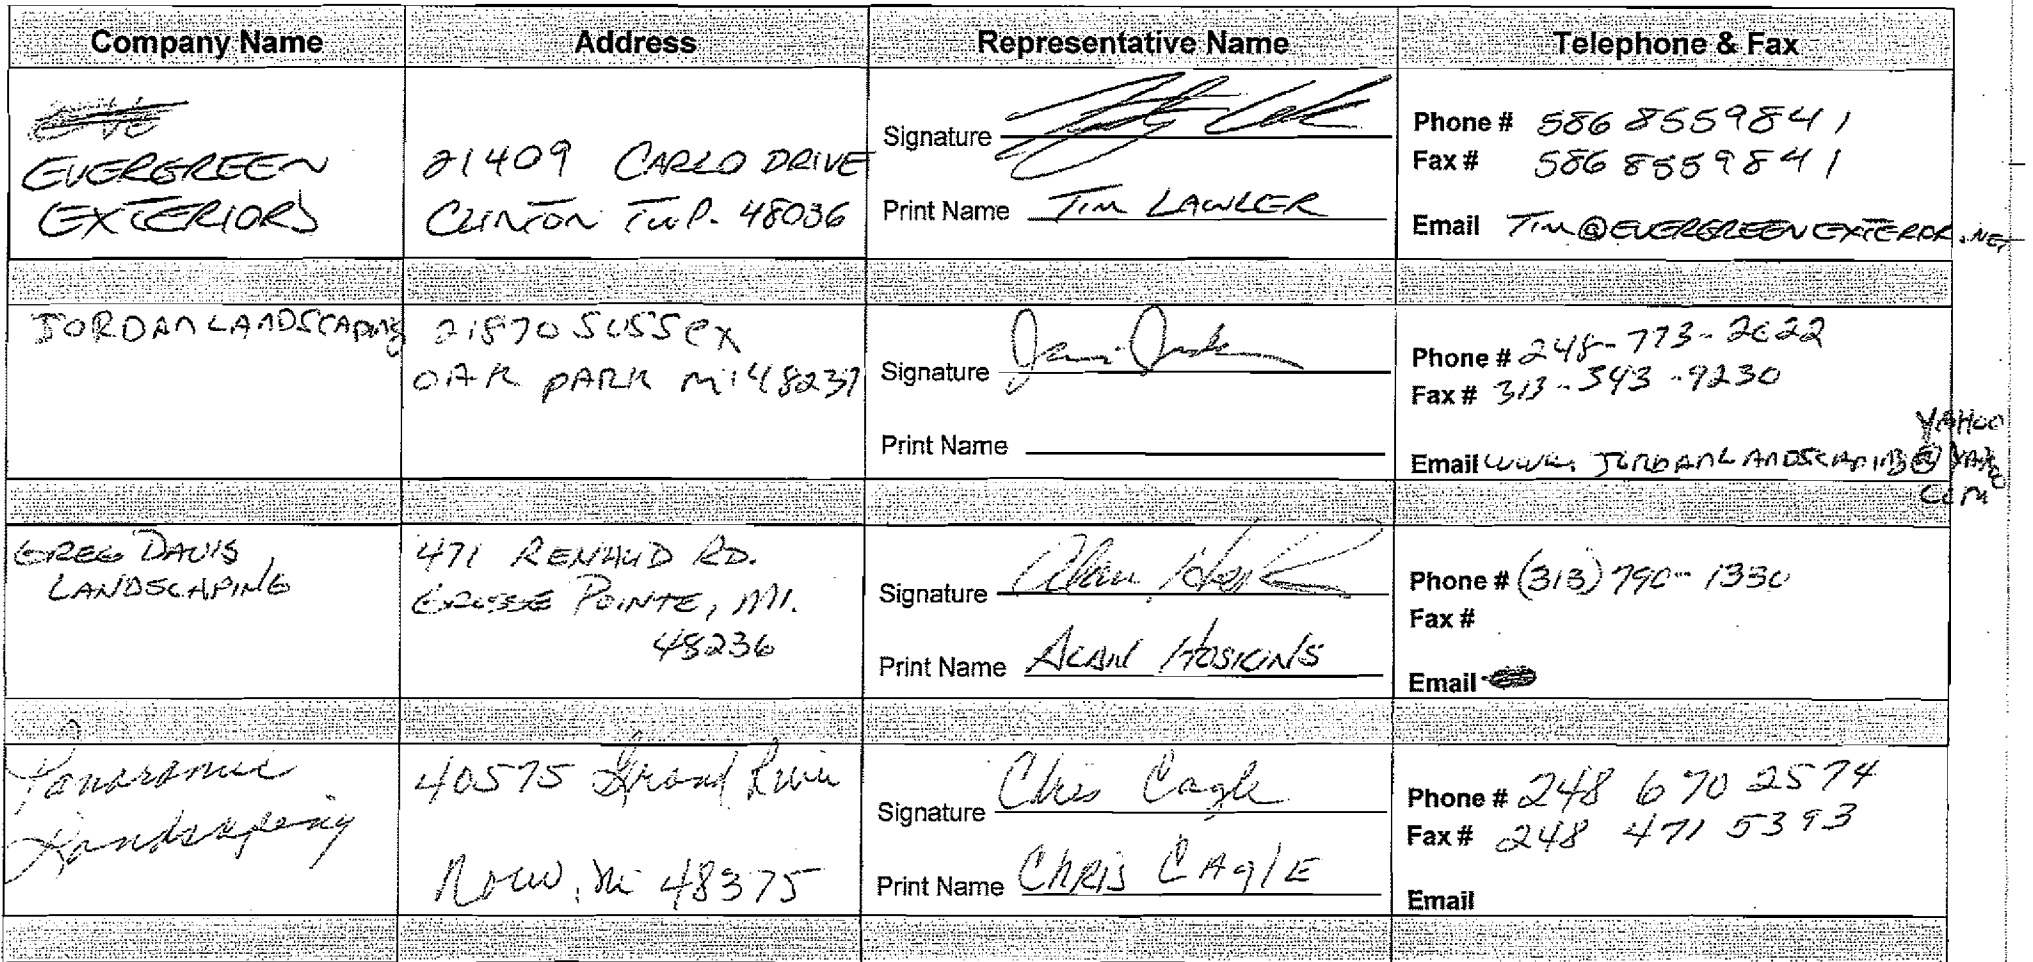 Company Name Address Representative Name Telephone & Fax
EVERGREEN EXTERIORS
21409 CARLO DRIVE
CLINTON TWP. 48036
Signature
Print Name TIM LAWLER
Phone # 586 8559841
Fax # 586 8559841
Email TIM@EVERGREENEXTERIOR.NET
JORDAN LANDSCAPING
21870 SUSSEX
OAK PARK Mi 48237
Signature
Print Name
Phone # 248-773-2022
Fax # 313-543-9230
YAHOO
Email www. JORDANLANDSCAPING@
COM
GREG DAVIS
LANDSCAPING
471 RENAUD RD.
GROSSE POINTE, MI.
48236
Signature Alan Hoskins
Print Name ALAN HOSKINS
Phone # (313) 790-1330
Fax #
Email
Panoramic
Landscaping
40575 Grand River
Novi, Mi 48375
Signature Chris Cagle
Print Name CHRIS CAglE
Phone # 248 670 2574
Fax # 248 471 5393
Email